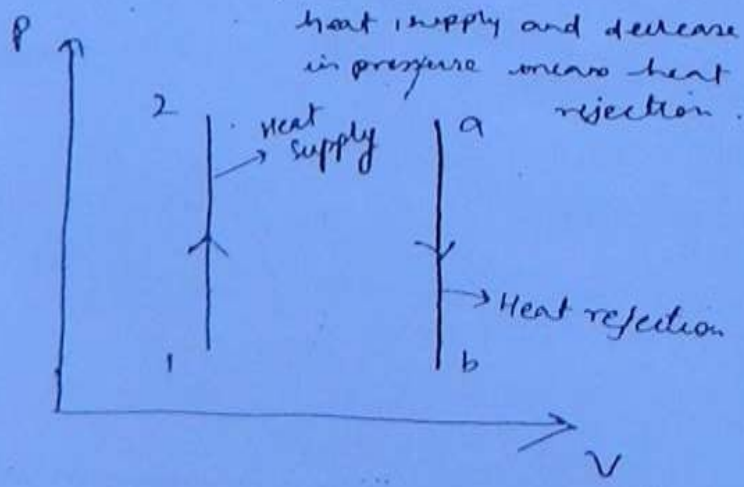 heat supply and decrease
in pressure means heat
rejection.
P
2
a
Heat
supply
Heat rejection
1
b
V